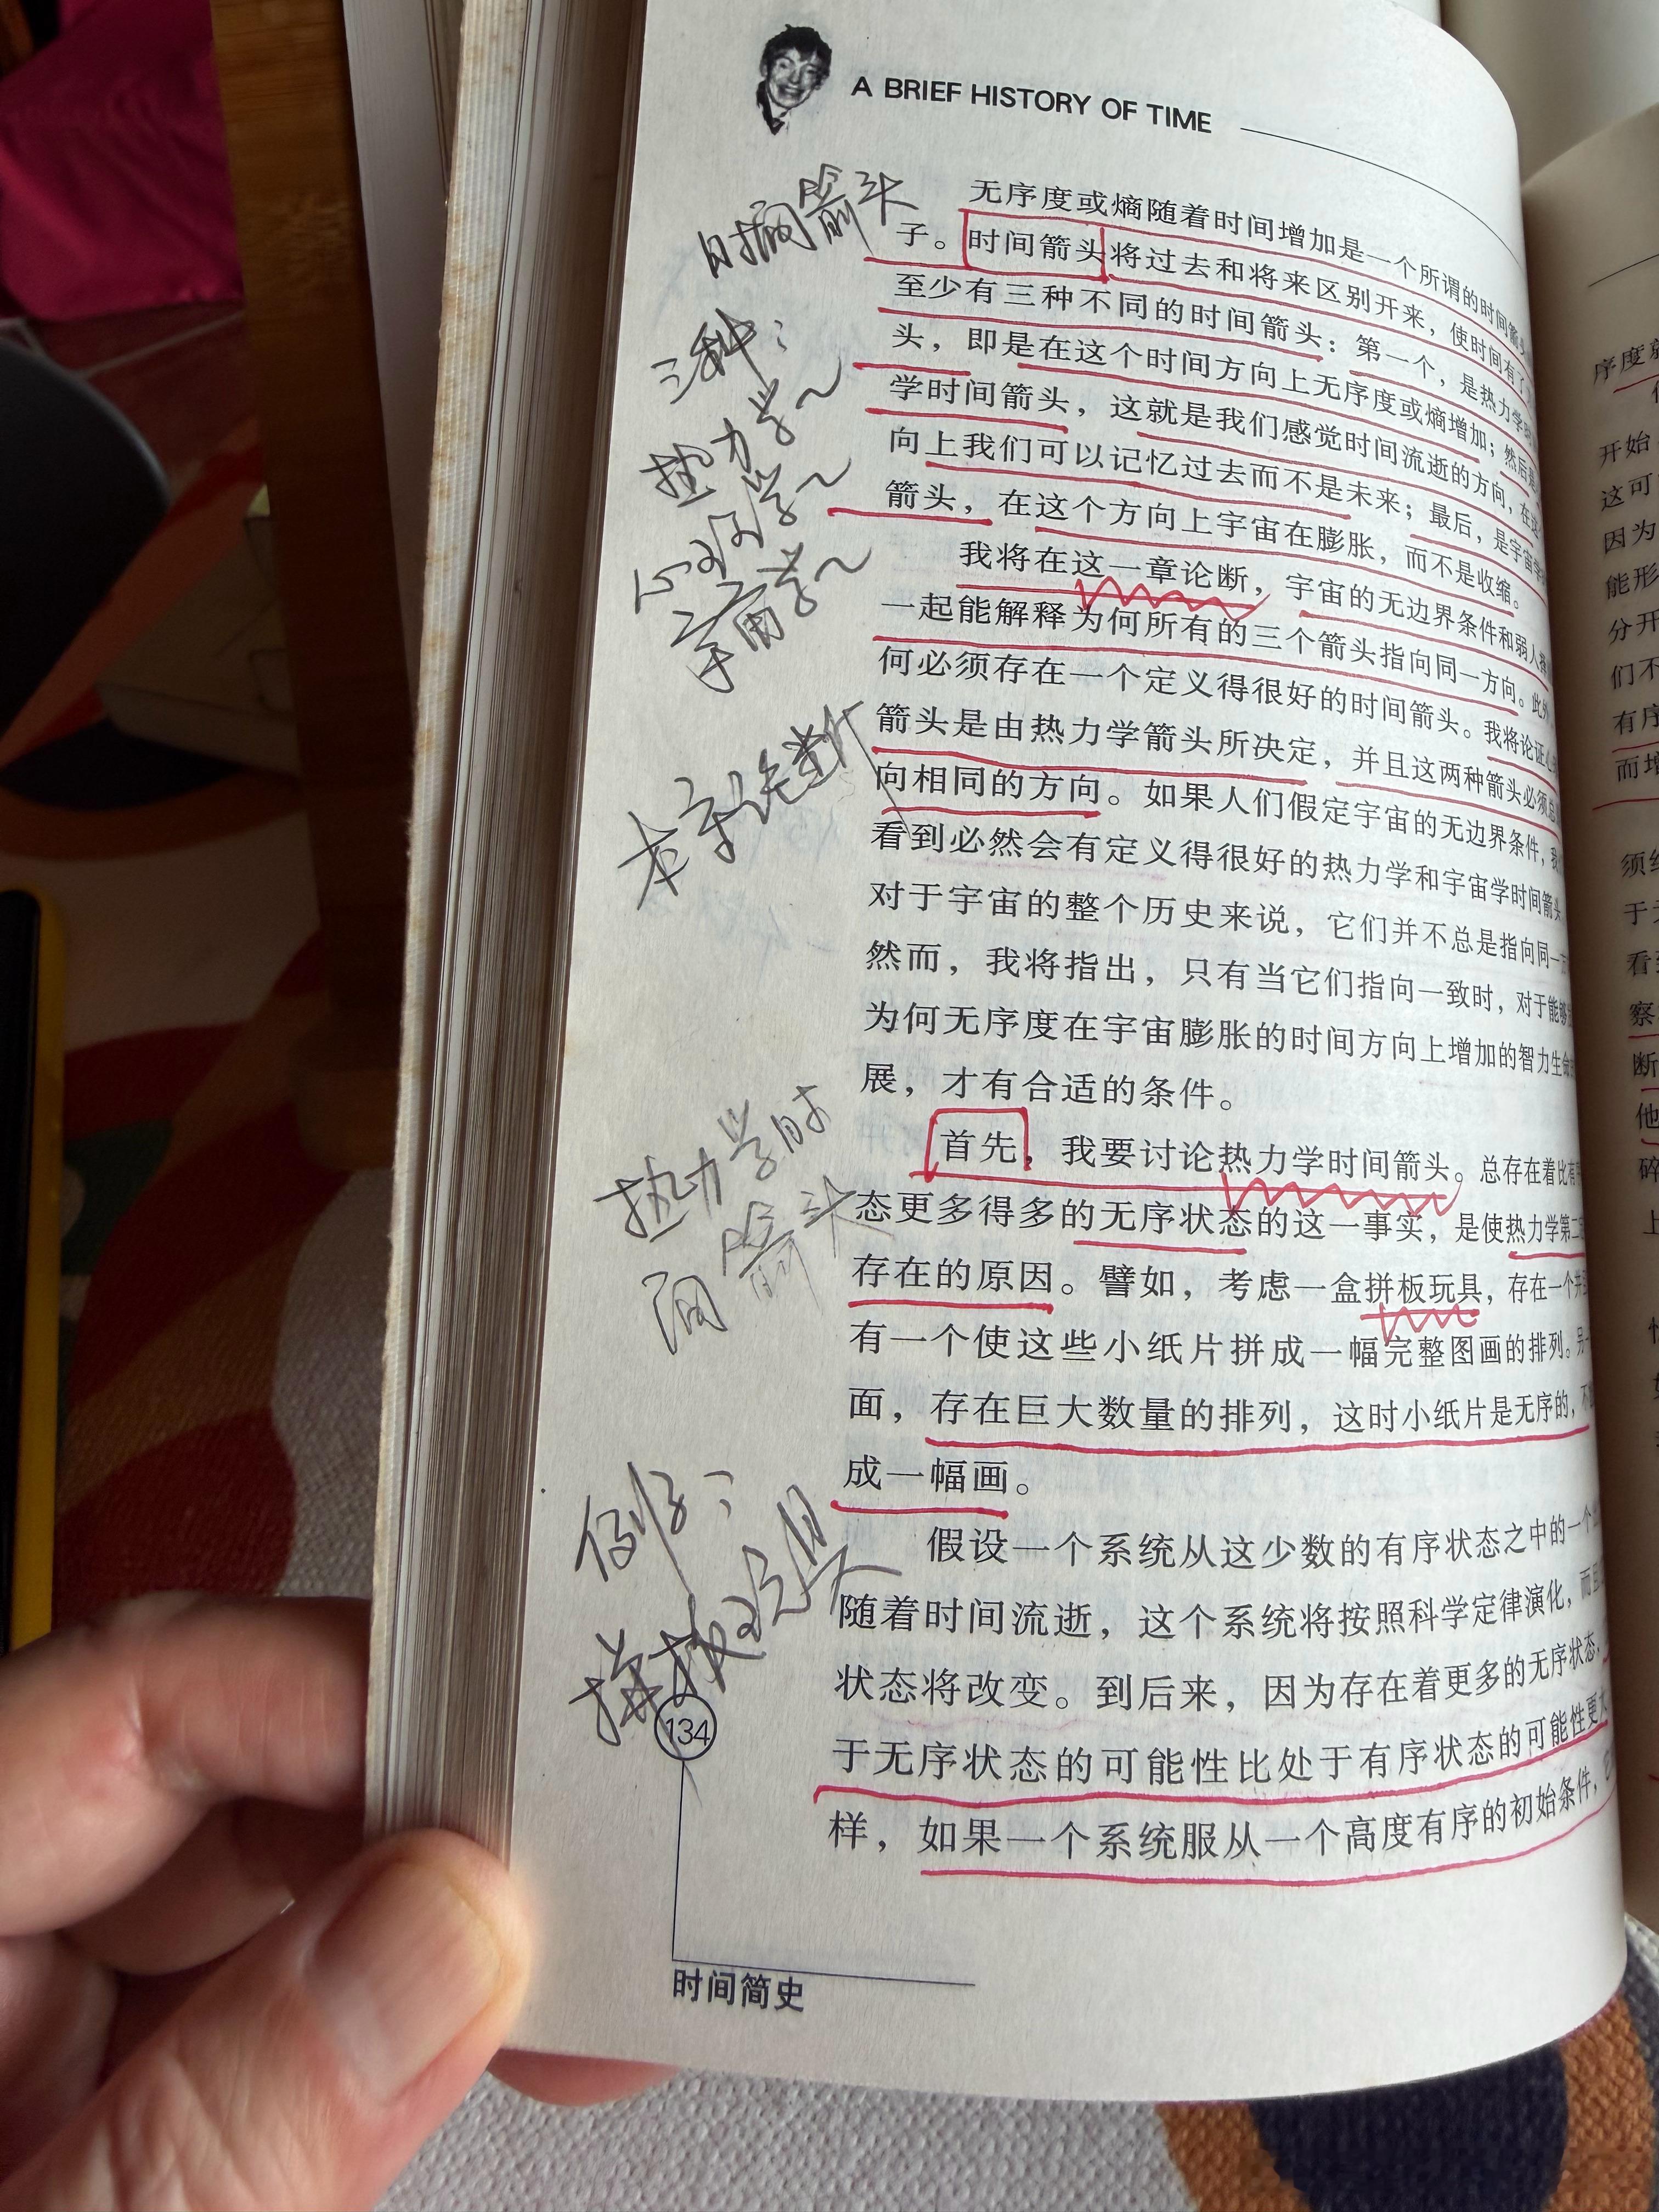 A BRIEF HISTORY OF TIME
时间箭头
三种：
热力学～
心理学～
宇宙学～
本章论断
热力学时
间箭头
例子：
拼板玩具
无序度或熵随着时间增加是一个所谓的时间箭头
子。时间箭头将过去和将来区别开来，使时间有了
至少有三种不同的时间箭头：第一个，是热力学
头，即是在这个时间方向上无序度或熵增加；然后是
学时间箭头，这就是我们感觉时间流逝的方向，在这
向上我们可以记忆过去而不是未来；最后，是宇宙学
箭头，在这个方向上宇宙在膨胀，而不是收缩。
我将在这一章论断，宇宙的无边界条件和弱人择
一起能解释为何所有的三个箭头指向同一方向。此外
何必须存在一个定义得很好的时间箭头。我将论证心
箭头是由热力学箭头所决定，并且这两种箭头必须总
向相同的方向。如果人们假定宇宙的无边界条件，我
看到必然会有定义得很好的热力学和宇宙学时间箭头
对于宇宙的整个历史来说，它们并不总是指向同一
然而，我将指出，只有当它们指向一致时，对于能够
为何无序度在宇宙膨胀的时间方向上增加的智力生命
展，才有合适的条件。
首先，我要讨论热力学时间箭头。总存在着比有
态更多得多的无序状态的这一事实，是使热力学第二
存在的原因。譬如，考虑一盒拼板玩具，存在一个并
有一个使这些小纸片拼成一幅完整图画的排列。另一
面，存在巨大数量的排列，这时小纸片是无序的，不
成一幅画。
假设一个系统从这少数的有序状态之中的一个
随着时间流逝，这个系统将按照科学定律演化，而且
状态将改变。到后来，因为存在着更多的无序状态，
于无序状态的可能性比处于有序状态的可能性更大
样，如果一个系统服从一个高度有序的初始条件，
134
时间简史
序度
开始
这可
因为
能形
分开
们不
有序
而增
须
于
看
察
断
他
碎
上